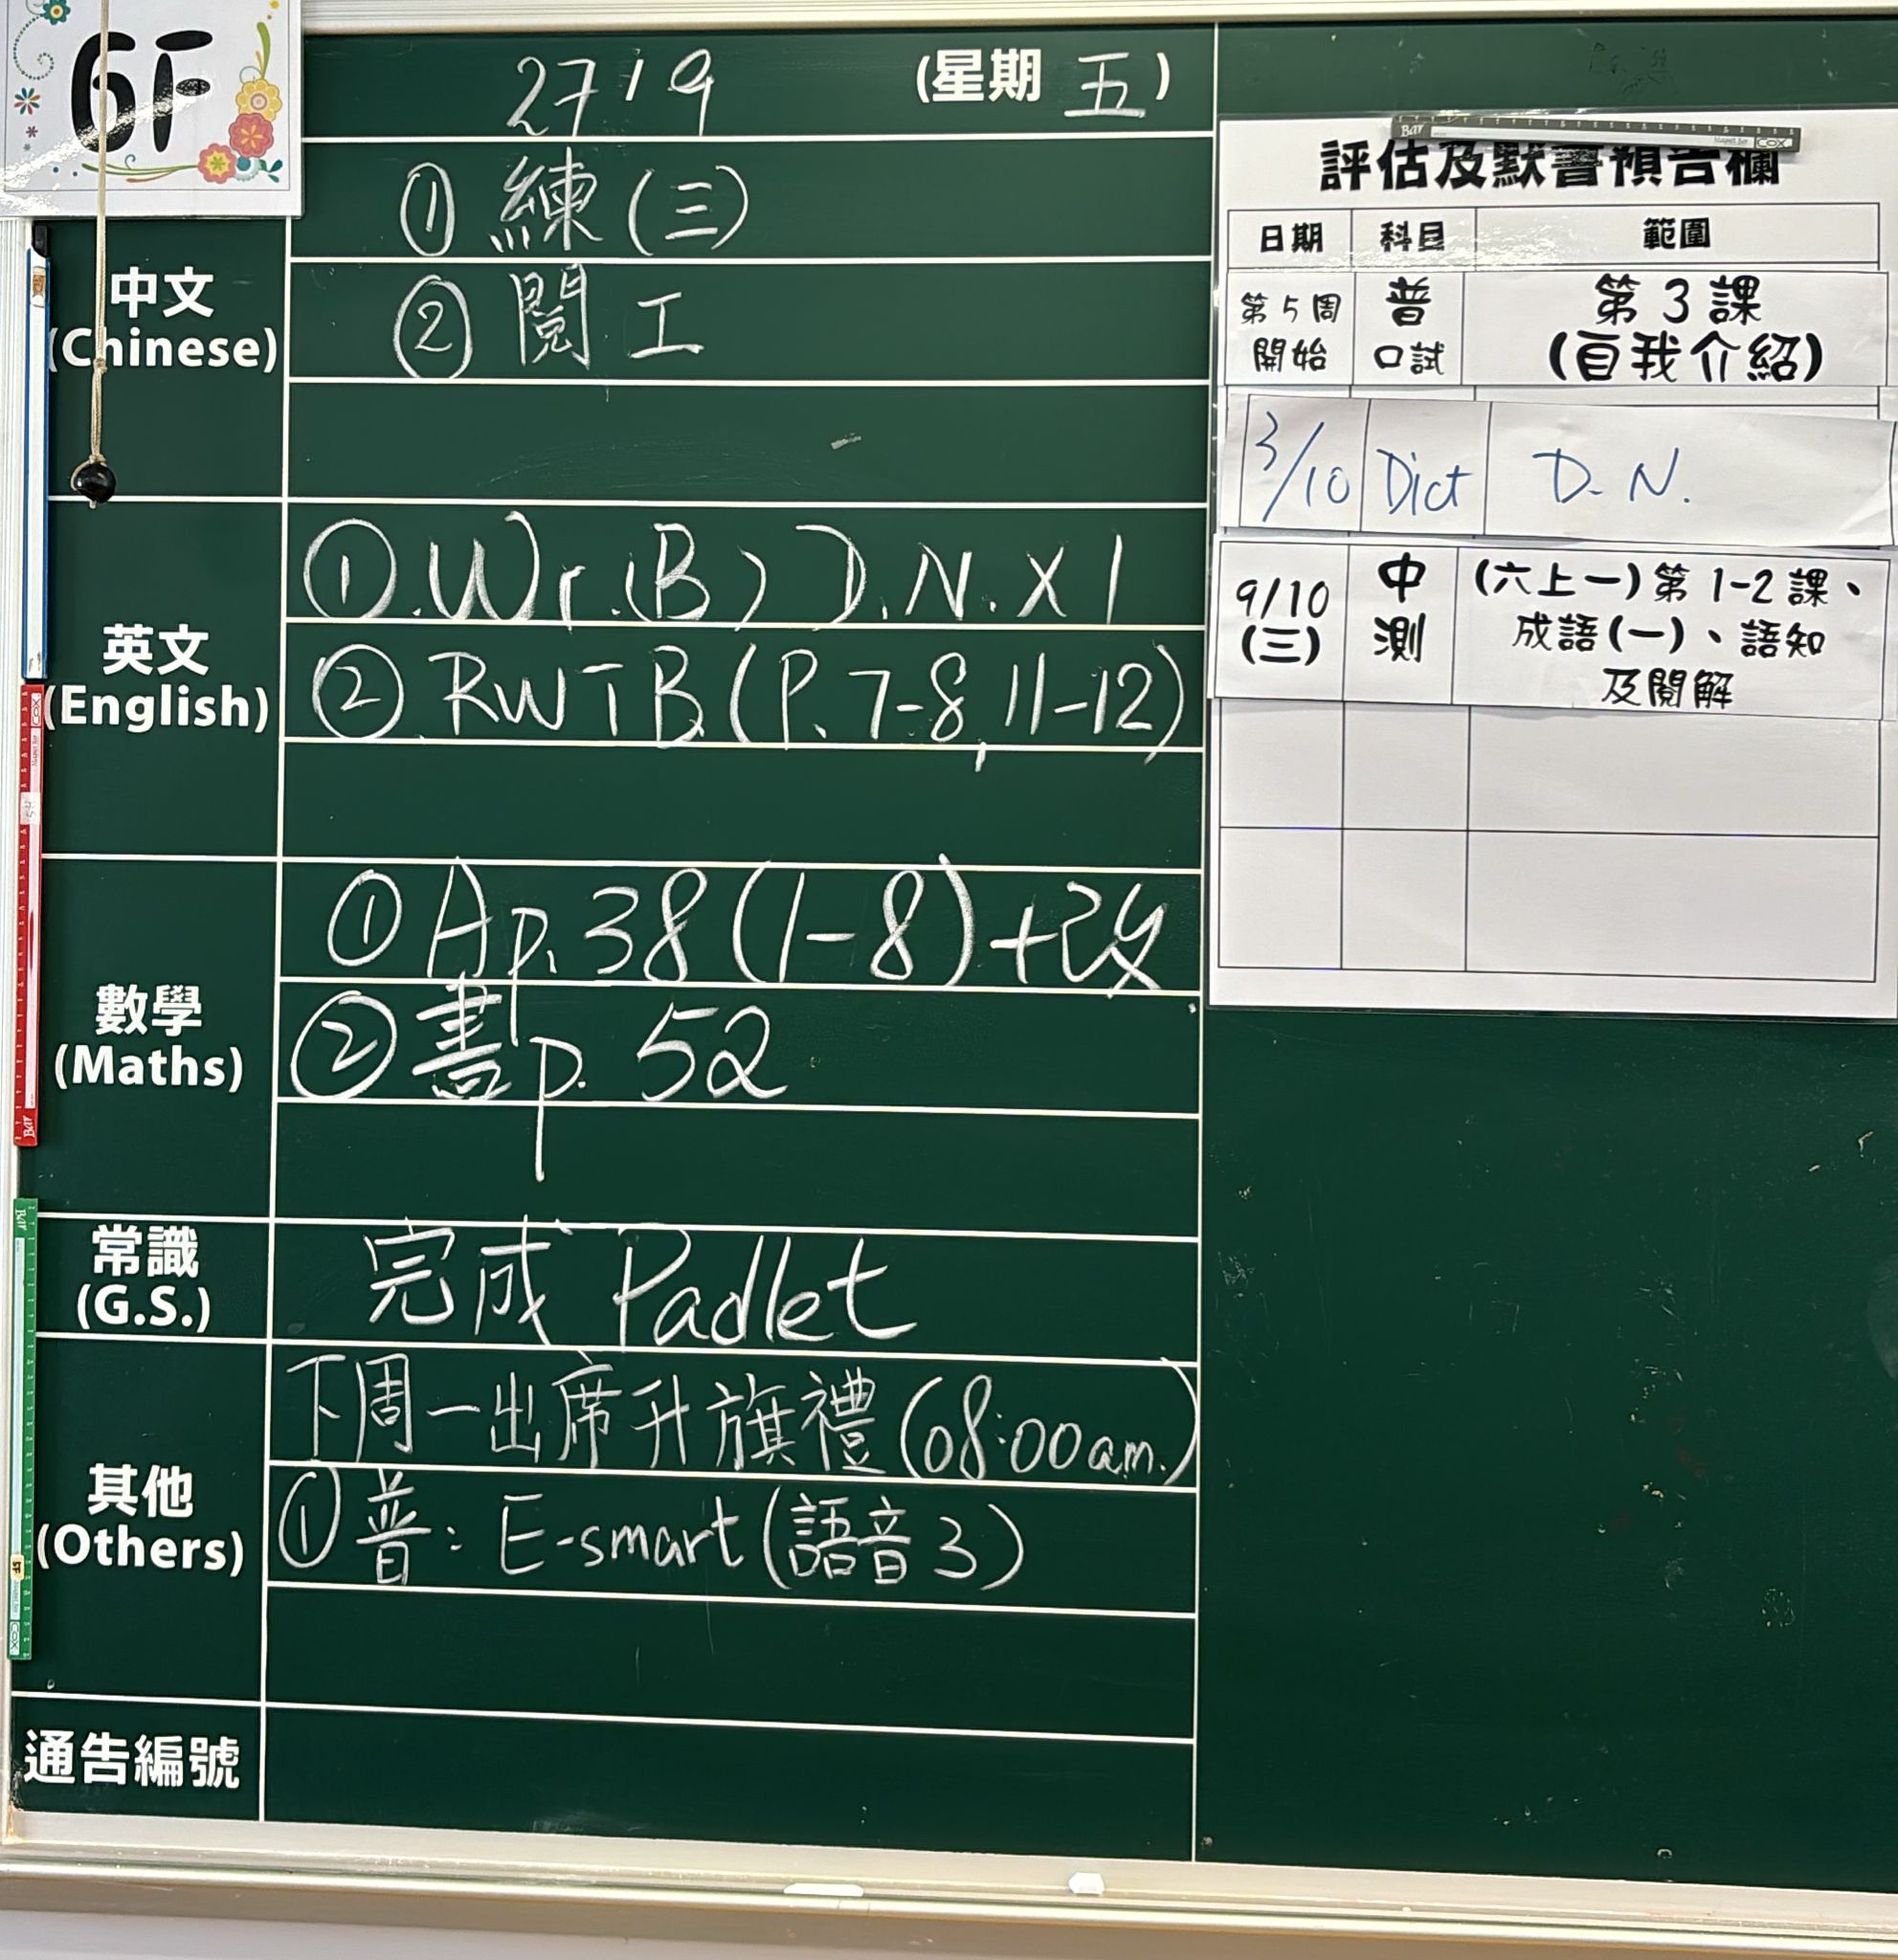 6F
27/9 (星期 五)
中文
(Chinese)
① 練(三)
② 閱工
英文
(English)
①.Wr.(B) D.N.X1
② RWTB(P.7-8,11-12)
數學
(Maths)
① Ap.38(1-8)+改
② 書p.52
常識
(G.S.)
完成 Padlet
其他
(Others)
下周一出席升旗禮(08:00am.)
① 普: E-smart(語音3)
通告編號
評估及默書預告欄
日期 科目 範圍
第5周
開始
普
口試
第3課
(自我介紹)
3/10 Dict D.N.
9/10
(三)
中
測
(六上一)第1-2課、
成語(一)、語知
及閱解